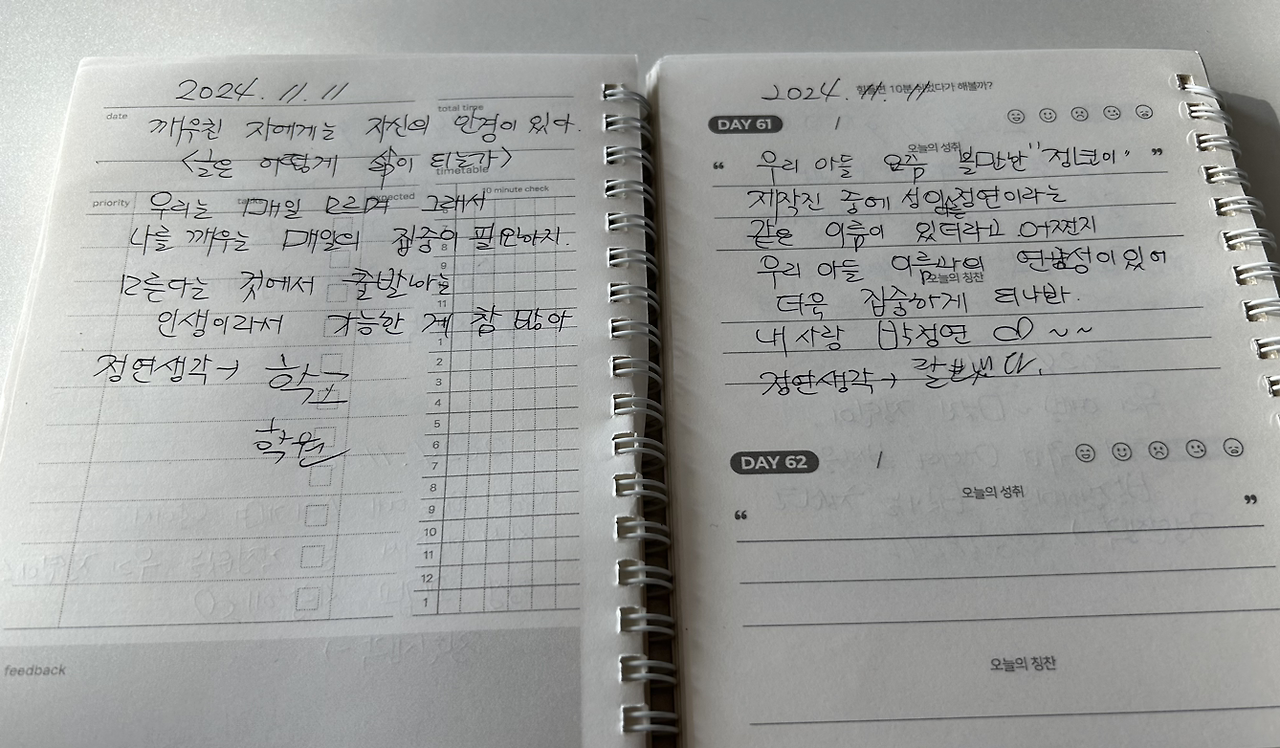 2024. 11. 11
date
total time
깨우친 자에게는 자신의 안경이 있다.
<글은 어떻게 삶이 되는가>
timetable
priority
10 minute check
우리는 매일 모르며 그래서
나를 깨우는 매일의 집중이 필요하지.
8
9
모른다는 것에서 출발하는
11
인생이라서 가능한 게 참 많아
1
정연생각→ 학교
2
3
4
5
학원
6
7
8
9
10
11
12
1
feedback
2024. 11. 11
힘들면 10분 쉬었다가 해볼까?
DAY 61 /
오늘의 성취
“ 우리 아들 요즘 볼만한 "정년이" ”
제작진 중에 성일정연이라는
같은 이름이 있더라고 어쩐지
우리 아들 이름과의 연관성이 있어
오늘의 칭찬
더욱 집중하게 되나봐.
내 사랑 박정연 ~~
정연생각→
DAY 62 /
오늘의 성취
“ ”
오늘의 칭찬